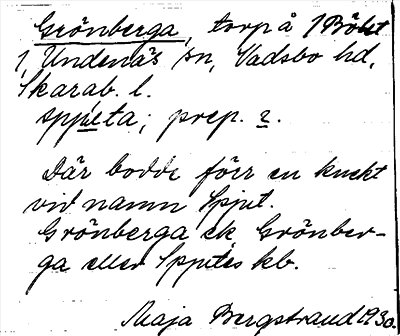 Grönberga, torp å 1 Bölet
1, Undenäs sn, Vadsbo hd,
Skarab. l.
spjuta; prep. 2.
Där bodde förr en knekt
vid namn Spjut.
Grönberga ek Grönber-
ga eller Spjutes kb.
Maja Bergstrand 1930.